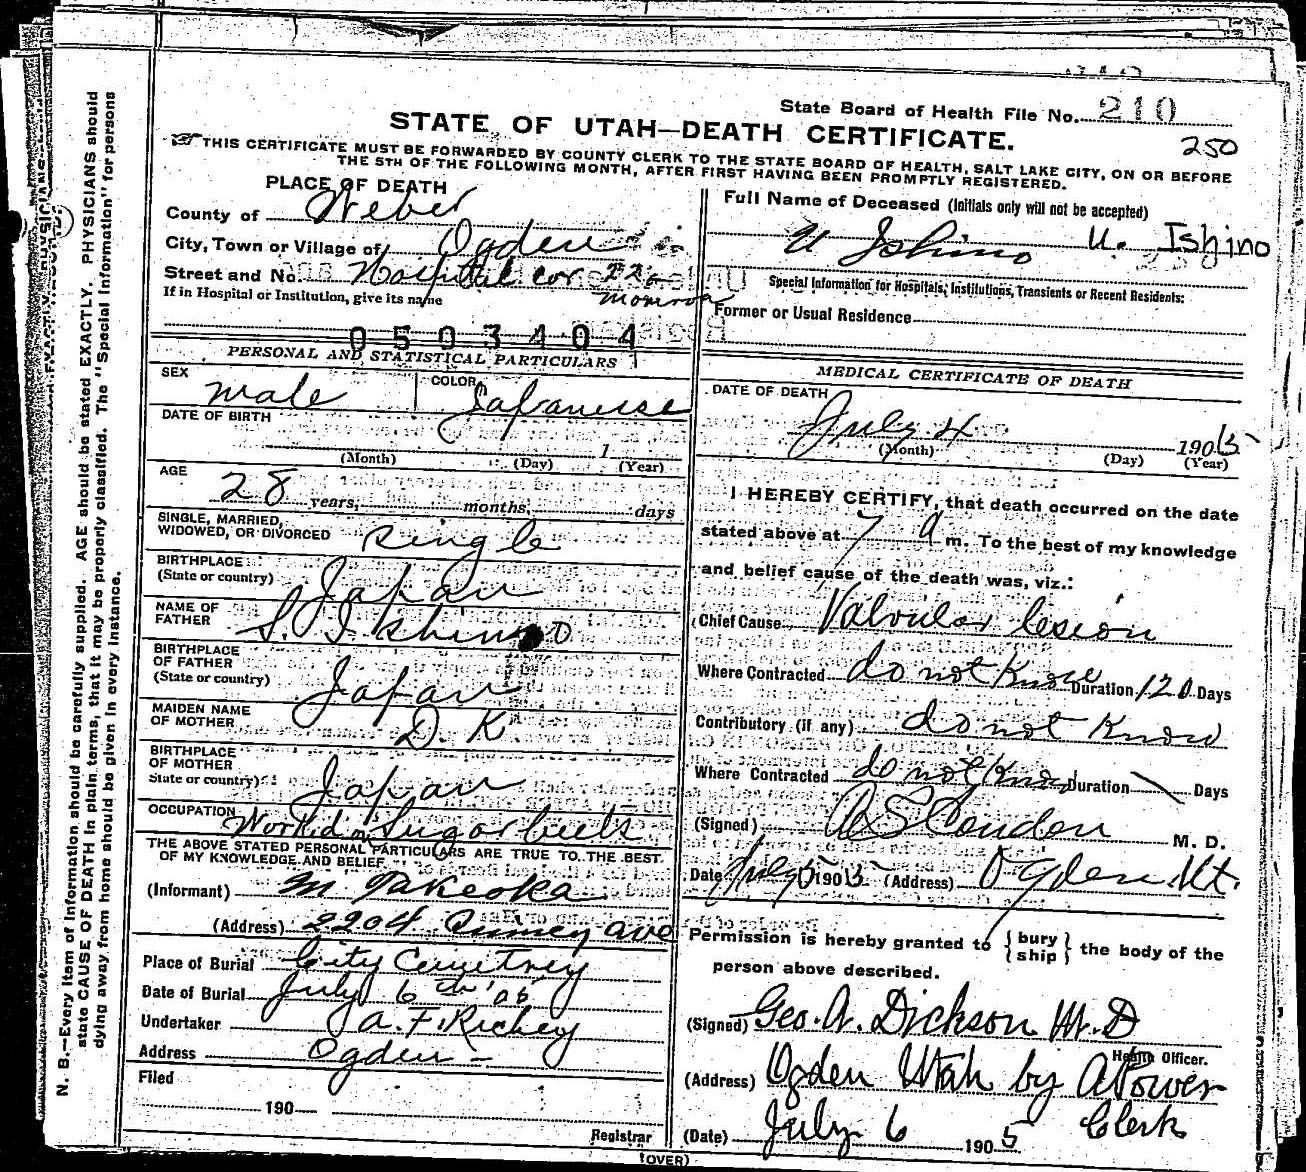 State Board of Health File No. 210
250
STATE OF UTAH—DEATH CERTIFICATE.
THIS CERTIFICATE MUST BE FORWARDED BY COUNTY CLERK TO THE STATE BOARD OF HEALTH, SALT LAKE CITY, ON OR BEFORE
THE 5TH OF THE FOLLOWING MONTH, AFTER FIRST HAVING BEEN PROMPTLY REGISTERED.
PLACE OF DEATH
County of Weber
City, Town or Village of Ogden
Street and No. Hospital cor 22
Monroe
If in Hospital or Institution, give its name
0503404
PERSONAL AND STATISTICAL PARTICULARS
SEX male COLOR Japanese
DATE OF BIRTH
(Month) (Day) 1 (Year)
AGE 28 years, months, days
SINGLE, MARRIED,
WIDOWED, OR DIVORCED single
BIRTHPLACE
(State or country) Japan
NAME OF
FATHER S. Ishino
BIRTHPLACE
OF FATHER
(State or country) Japan
MAIDEN NAME
OF MOTHER D. K
BIRTHPLACE
OF MOTHER
State or country) Japan
OCCUPATION Worked in Sugar beets
THE ABOVE STATED PERSONAL PARTICULARS ARE TRUE TO THE BEST
OF MY KNOWLEDGE AND BELIEF
(Informant) M Takeoka
(Address) 2204 Quincy ave
Place of Burial City Cemetrey
Date of Burial July 6th '05
Undertaker J. A. F. Richey
Address Ogden -
Filed
190
Registrar
Full Name of Deceased (Initials only will not be accepted)
U Ishino U. Ishino
Special Information for Hospitals, Institutions, Transients or Recent Residents:
Former or Usual Residence
MEDICAL CERTIFICATE OF DEATH
DATE OF DEATH
July 4 1905
(Month) (Day) (Year)
I HEREBY CERTIFY, that death occurred on the date
stated above at 7 a m. To the best of my knowledge
and belief cause of the death was, viz.:
Chief Cause Valvular lesion
Where Contracted do not know Duration 120 Days
Contributory (if any) do not know
Where Contracted do not know Duration Days
(Signed) A S Condon M. D.
Date July 5 1905 (Address) Ogden Ut.
Permission is hereby granted to { bury ship } the body of the
person above described.
(Signed) Geo. A. Dickson M. D
Health Officer.
(Address) Ogden Utah by A Power
Clerk
(Date) July 6 1905
(OVER)
N. B.—Every item of information should be carefully supplied. AGE should be stated EXACTLY. PHYSICIANS should
state CAUSE OF DEATH in plain terms, that it may be properly classified. The "Special Information" for persons
dying away from home should be given in every instance.